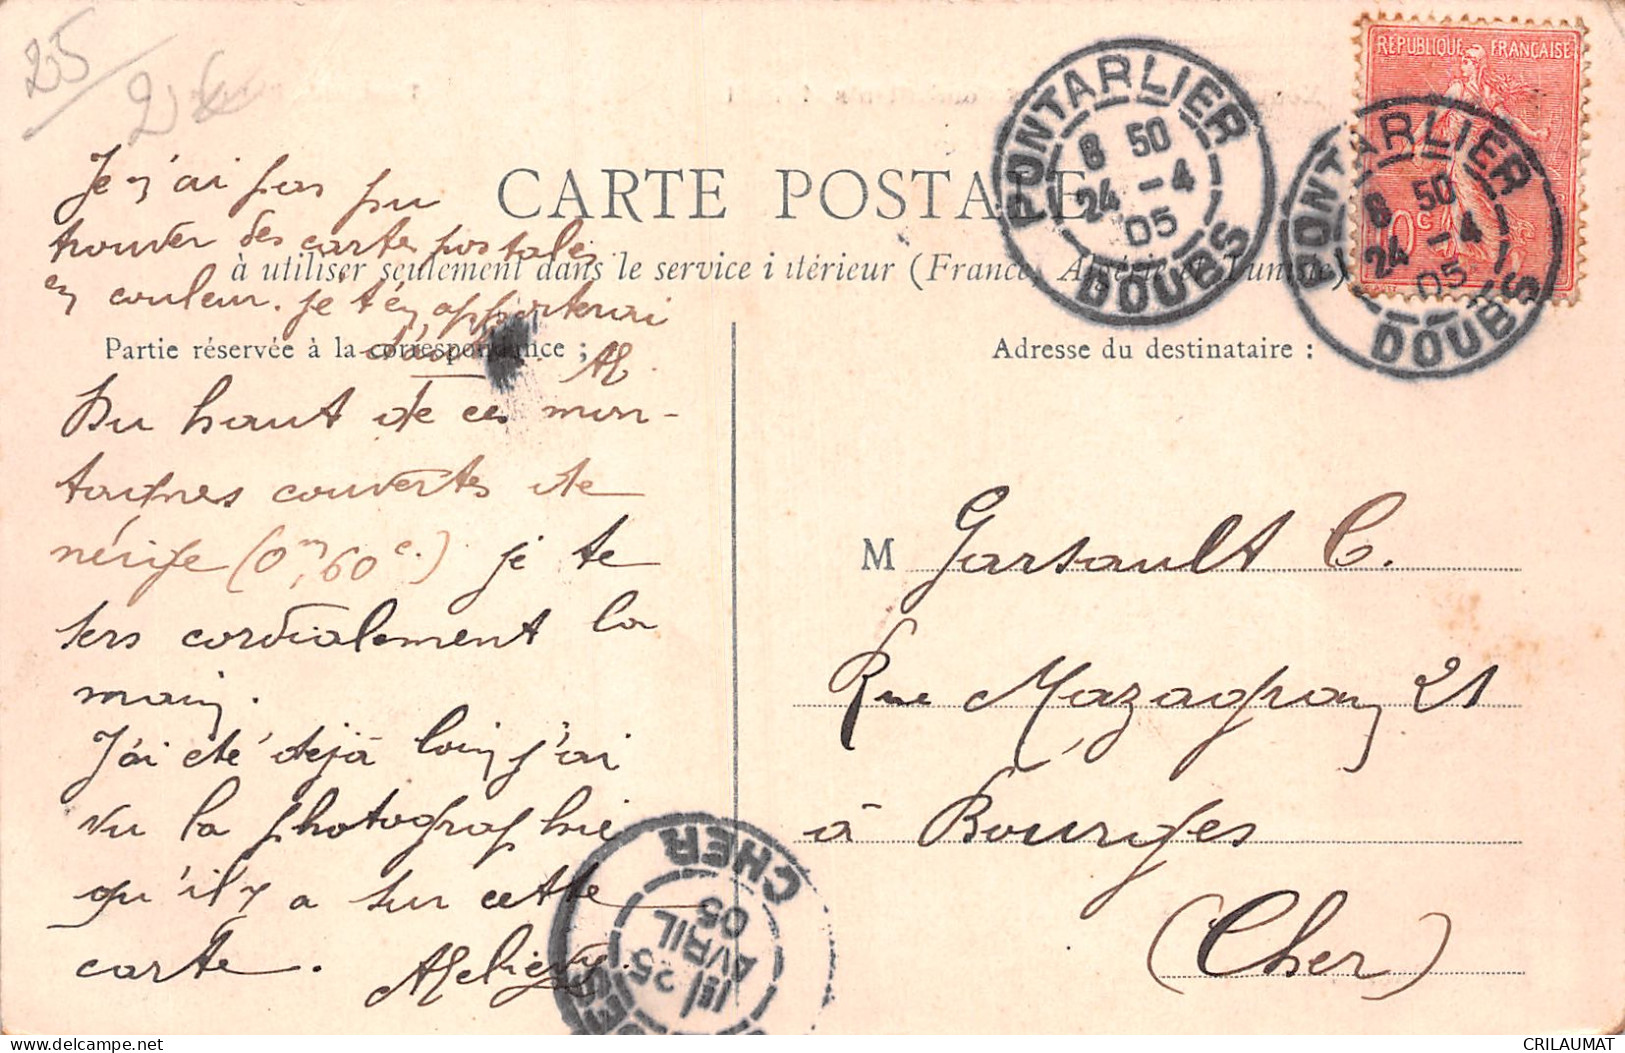 25/2
Je n'ai pas pu
trouver des cartes postales
en couleur. je t'en apporterai
CARTE POSTALE
à utiliser seulement dans le service intérieur (France, Algérie et Tunisie)
Partie réservée à la correspondance ;
Adresse du destinataire :
Du haut de ces mon-
tagnes couvertes de
neige (0m,60c.) je te
sers cordialement la
main.
J'ai été déjà loin j'ai
vu la photographie
qu'il y a sur cette
carte.
M Garsault C.
Rue Mazagran 21
à Bourges
(Cher)
REPUBLIQUE FRANÇAISE
10c
PONTARLIER
8 50
24 - 4
05
DOUBS
PONTARLIER
8 50
24 - 4
05
DOUBS
CHER
25
AVRIL
05
CRILAUMAT